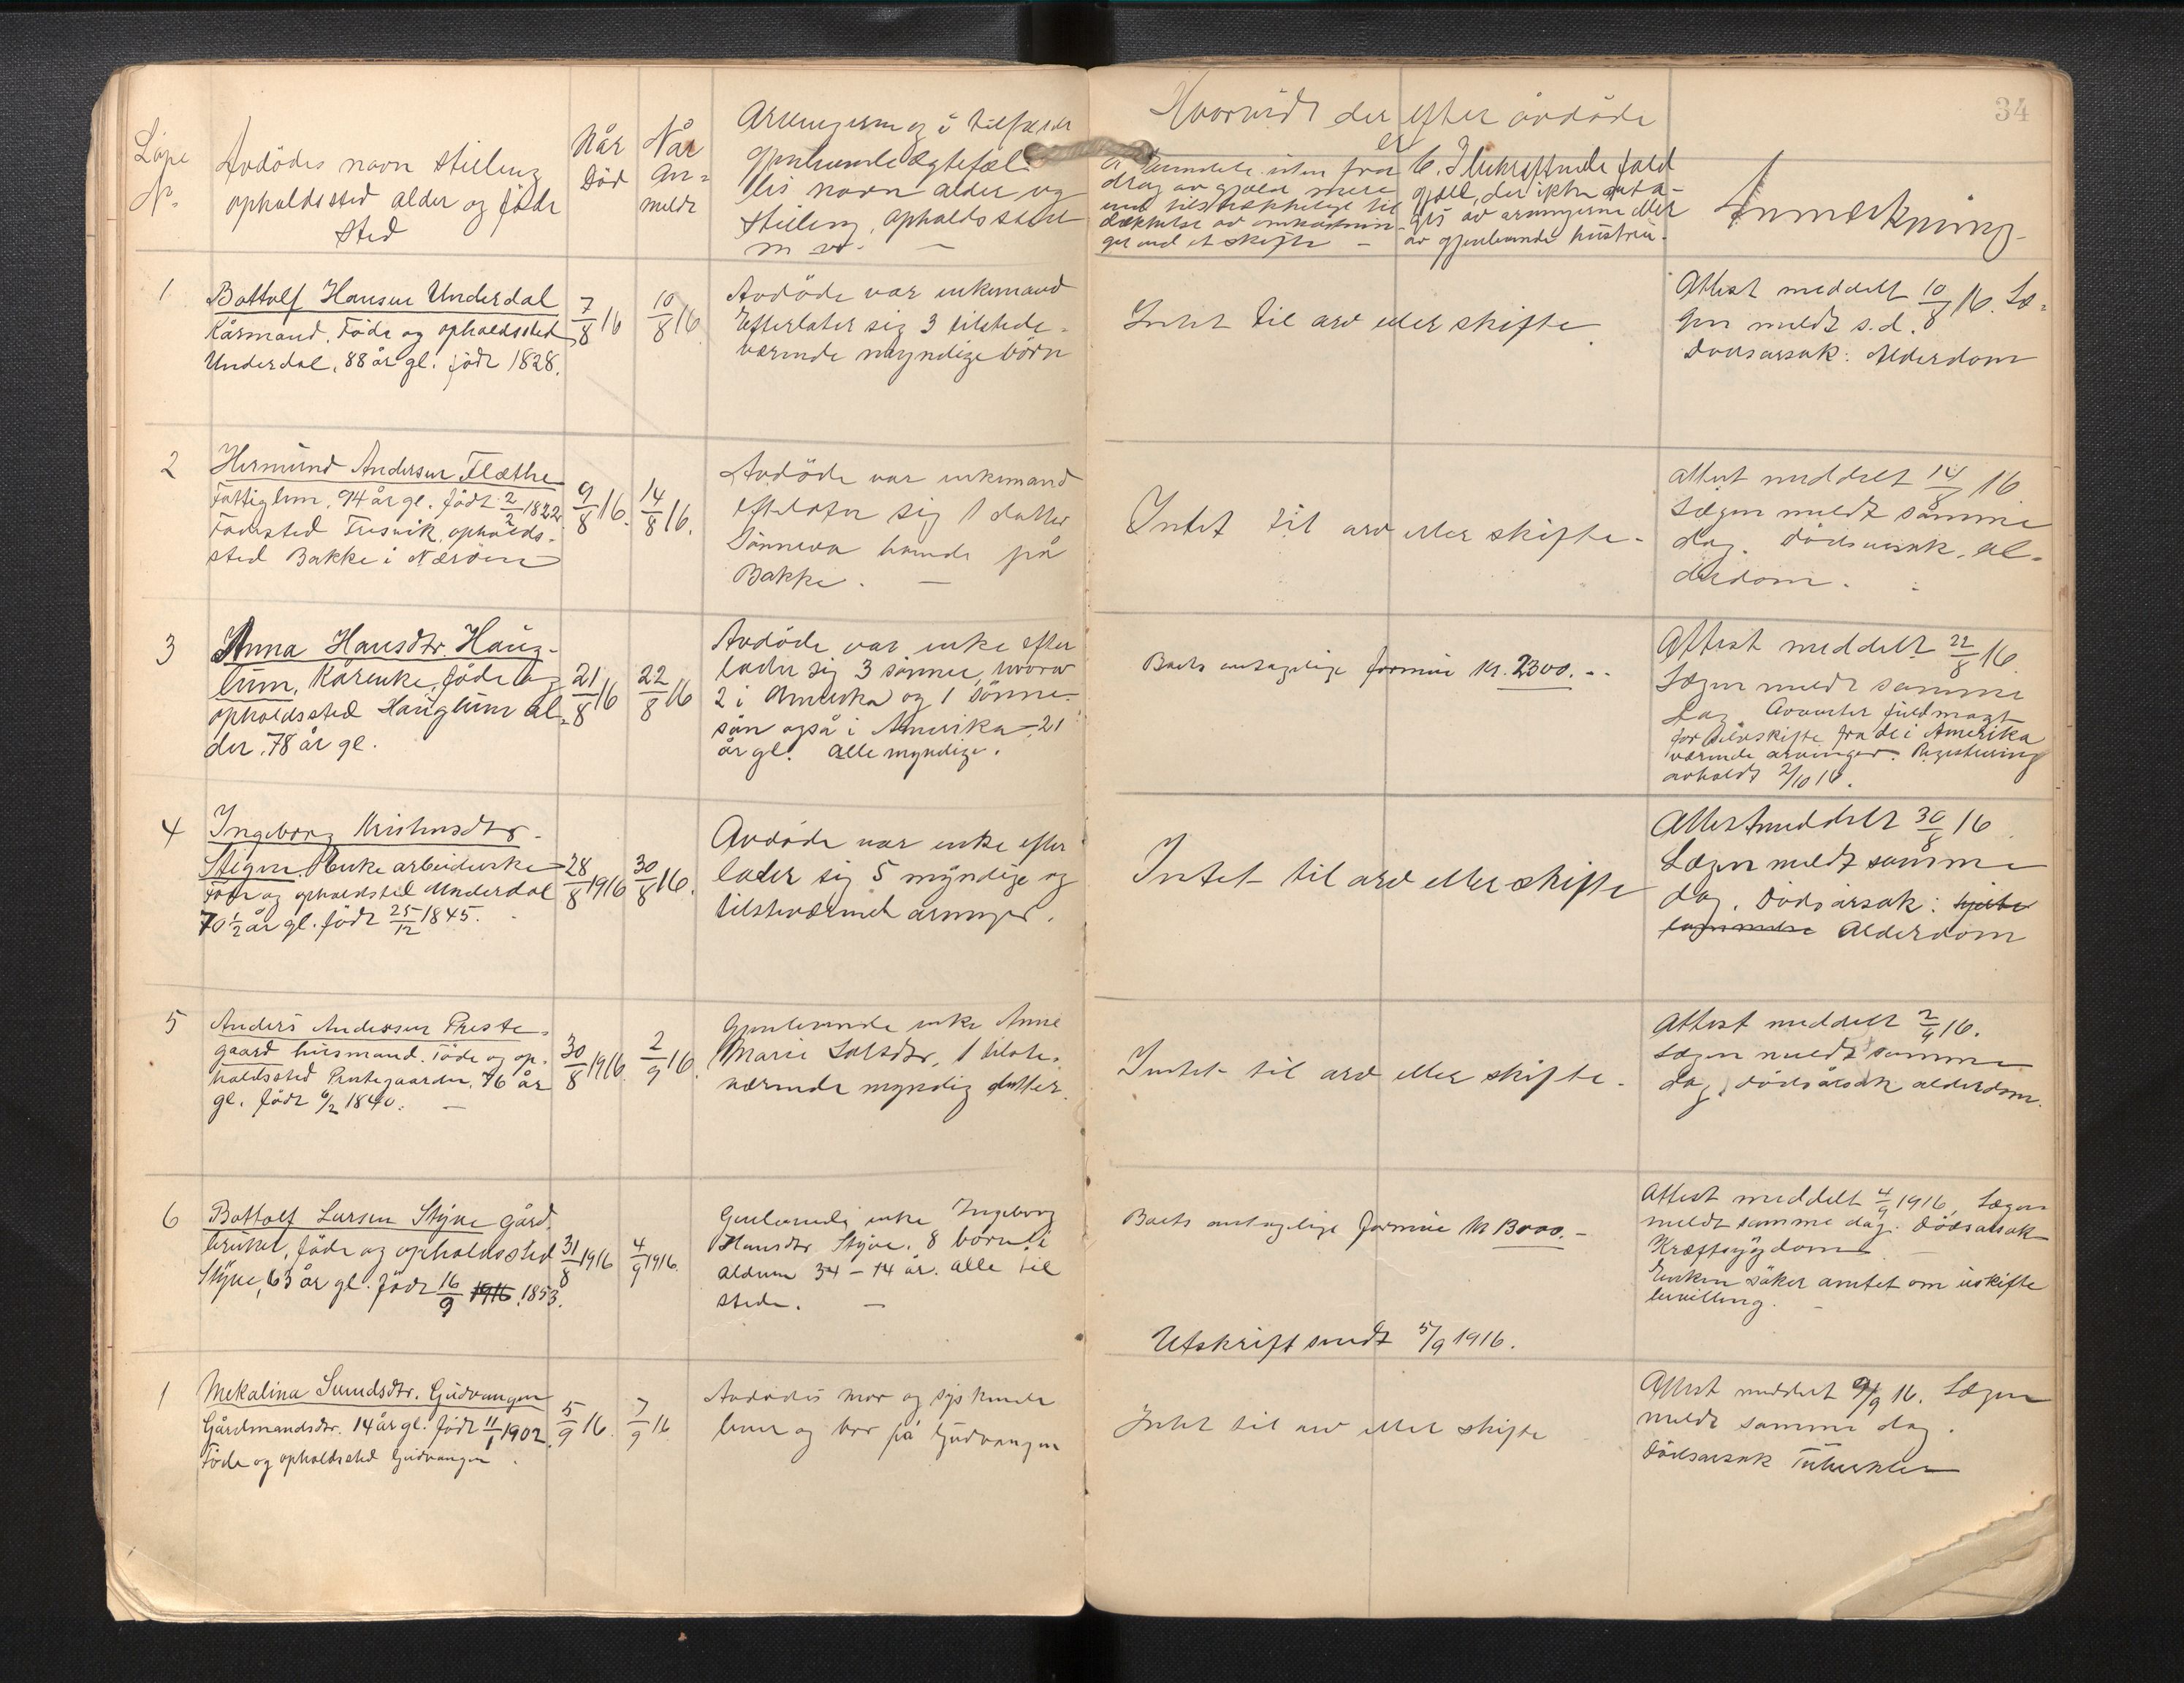 34
Løpe
Nr.
Avdødes navn stilling
opholdssted alder og føde
sted
Når
Død
Når
An=
meldt
Arvingerne og i tilfælde
gjenlevende ægtefæl-
les navn alder og
stilling, opholdssted
m v. —
Hvorvidt der efter avdøde
er
a.
drag av gjæld mere
end tilstrækkelige til
dækkelse av omkostnin-
ger ved et skifte —
b. Ilukræftende fald
gjæld, der ikke anta-
ges av arvingerne eller
av gjenlevende hustru.
Anmerkning
1
Bottolf Hansen Underdal
Kårmand. Føde og opholdssted
Underdal, 88 år gl. født 1828.
7/8 16
10/8 16
Avdøde var enkemand
Efterlater sig 3 tilstede-
værende myndige børn
Intet til arv eller skifte.
Attest meddelt 10/8 16. Læ=
gen meldt s.d.
Dødsårsak: Alderdom
2
Hermund Andersen Flæthe
Fattiglem. 94 år gl. født 2/2 1822
Fødested Fresvik, opholds-
sted Bakke i Nærøen
9/8 16.
14/8 16.
Avdøde var enkemand
efterlater sig 1 datter
Sønneva boende på
Bakke. —
Intet til arv eller skifte-
Attest meddelt 14/8 16
Lægen meldt samme
dag. Dødsårsak, al-
derdom.
3
Anna Hansdtr. Haug-
lum, Kårenke, føde og
opholdssted Hauglum al-
der. 78 år gl.
21/8 16
22/8 16
Avdøde var enke efter
lader sig 3 sønner, hvorav
2 i Amerika og 1 sønne-
søn også i Amerika, 21
år gl. alle myndige.
Boets antagelige formue kr. 2300.--
Attest meddelt 22/8 16.
Lægen meldt samme
dag. Avventer fuldmagt
for selvskifte fra de i Amerika
værende arvinger. Registrering
avholdt 2/10 16.
4
Ingeborg Kristensdtr.
Stigen. Enke arbeiderske
Føde og opholdssted Underdal
70½ år gl. født 25/12 1845.
28/8 1916
30/8 16.
Avdøde var enke efter
lader sig 5 myndige og
tilsteværende arvinger.
Intet til arv eller skifte
Attest meddelt 30/8 16
Lægen meldt samme
dag. Dødsårsak: hjerte
lammelse Alderdom
5
Anders Andersen Preste-
gaard husmand. Føde og op-
holdssted Prestegaarden, 76 år
gl. født 6/2 1840. —
30/8 1916.
2/9 16.
Gjenlevende enke Anne
Marie Larsdtr, 1 tilste-
værende myndig datter.
Intet til arv eller skifte-
Attest meddelt 2/9 16.
Lægen meldt samme
dag, dødsårsak alderdom.
6
Bottolf Larsen Styve gård.
bruker, føde og opholdssted
Styve, 63 år gl. født 16/9 1916 1853.
31/8 1916
4/9 1916.
Gjenlevende enke Ingeborg
Hansdtr Styve. 8 børn i
alderen 34 – 14 år. alle til
stede. —
Boets antagelige formue kr 13000.-
Utskrift sendt 5/9 1916.
Attest meddelt 4/9 1916, Lægen
meldt samme dag. Dødsårsak
Kræftsygdom
Enken søker amtet om uskifte
bevilling.
1
Mekalina Sundsdtr. Gudvangen
Gårdmandsdtr. 14 år gl. født 11/1 1902.
Føde og opholdssted Gudvangen.
5/9 16.
7/9 16
Avdødes mor og søskende
lever og bor på Gudvangen
Intet til arv eller skifte
Attest meddelt 9/9 16. Lægen
meldt samme dag.
Dødsårsak Tuberkler